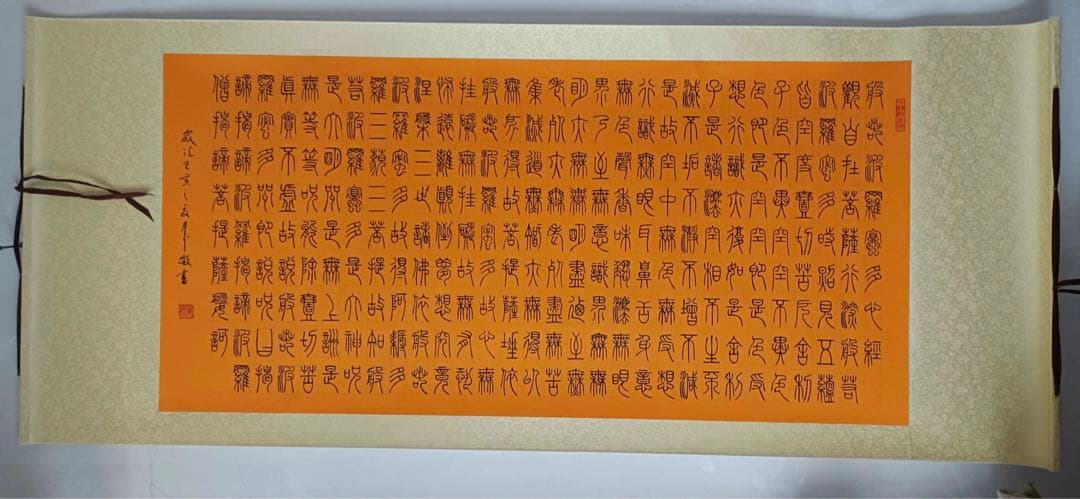 般若波羅蜜多心經
觀自在菩薩行深般若
波羅蜜多時照見五蘊
皆空度壹切苦厄舍利
子色不異空空不異色
色即是空空即是色受
想行識亦復如是舍利
子是諸灋空相不生不
滅不垢不淨不增不減
是故空中無色無受想
行識無眼耳鼻舌身意
無色聲香味觸灋無眼
界乃至無意識界無無
明亦無無明盡乃至無
老死亦無老死盡無苦
集滅道無智亦無得以
無所得故菩提薩埵依
般若波羅蜜多故心無
罣礙無罣礙故無有恐
怖遠離顛倒夢想究竟
涅槃三世諸佛依般若
波羅蜜多故得阿耨多
羅三藐三菩提故知般
若波羅蜜多是大神咒
是大明咒是無上咒是
無等等咒能除壹切苦
真實不虛故說般若波
羅蜜多咒即說咒曰揭
諦揭諦波羅揭諦波羅
僧揭諦菩提薩婆訶
歲次 敬書